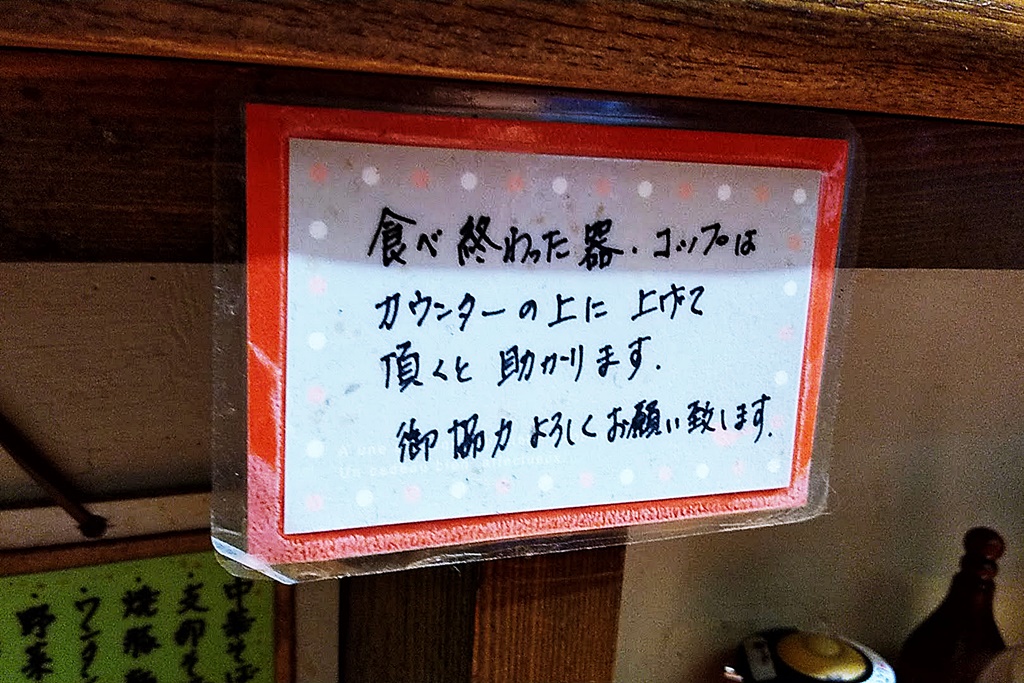 食べ終わった器・コップは
カウンターの上に上げて
頂くと助かります.
御協力よろしくお願い致します.
A une
Un cadeau bien
中華そば
支那そ
焼豚
・ワンタン
・野菜